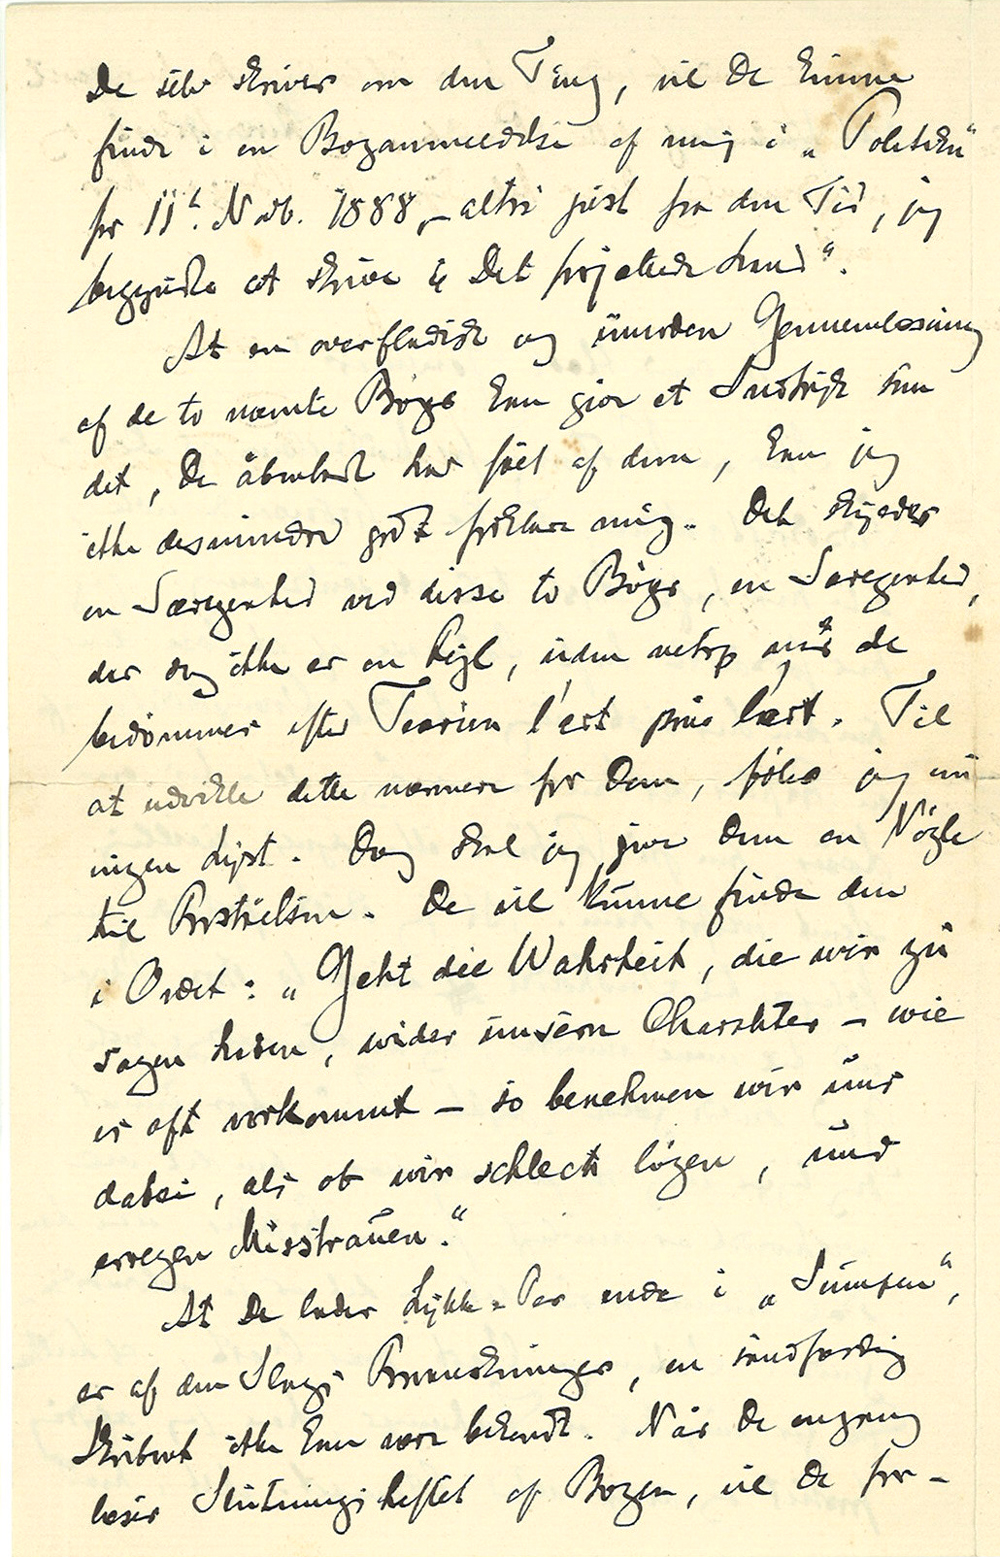 De selv skriver om den Ting, vil De kunne
finde i en Boganmeldelse af mig i „Politiken“
for 11te. Novb. 1888, – altså just fra den Tid, jeg
begyndte at skrive på „Det forjættede Land“.
At en overfladisk og umoden Gennemlæsning
af de to nævnte Bøger kan give et Indtryk som
det, De åbenbart har fået af dem, kan jeg
ikke desmindre godt forklare mig. Det skyldes
en Særegenhed ved disse to Bøger, en Særegenhed,
der dog ikke er en Fejl, uden netop når de
bedømmes efter Teorien l'art pour l'art. Til
at udvikle dette nærmere for Dem, føler jeg nu
ingen Lyst. Dog skal jeg give Dem en Nøgle
til Forståelsen. De vil kunne finde den
i Ordet: „Geht die Wahrheit, die wir zu
sagen haben, wider unsern Charakter – wie
es oft vorkommt – so benehmen wir uns
dabei, als ob wir schlecht lögen, und
erregen Misstrauen.“
At De lader Lykke-Per ende i „Sumpen“,
er af den Slags Forvanskninger, en sandfærdig
Skribent ikke kan være bekendt. Når De engang
læser Slutningsheftet af Bogen, vil De for-